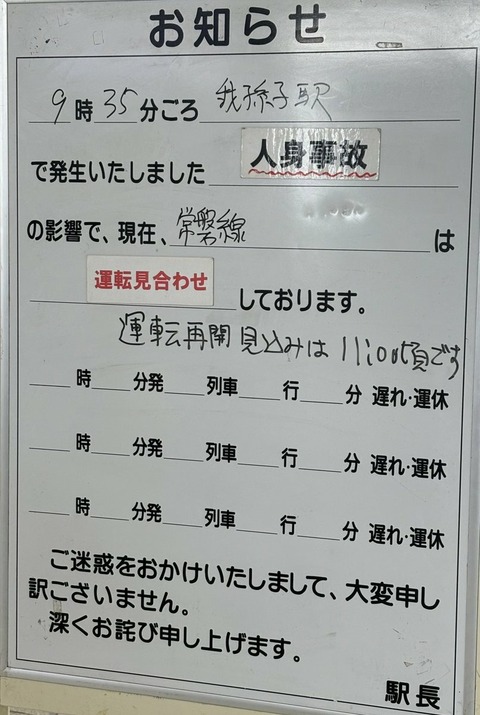 お知らせ
9時35分ごろ 我孫子駅
で発生いたしました 人身事故
の影響で、現在、常磐線 は
運転見合わせ しております。
運転再開見込みは11:00頃です
時 分発 列車 行 分 遅れ・運休
時 分発 列車 行 分 遅れ・運休
時 分発 列車 行 分 遅れ・運休
ご迷惑をおかけいたしまして、大変申し
訳ございません。
深くお詫び申し上げます。
駅長